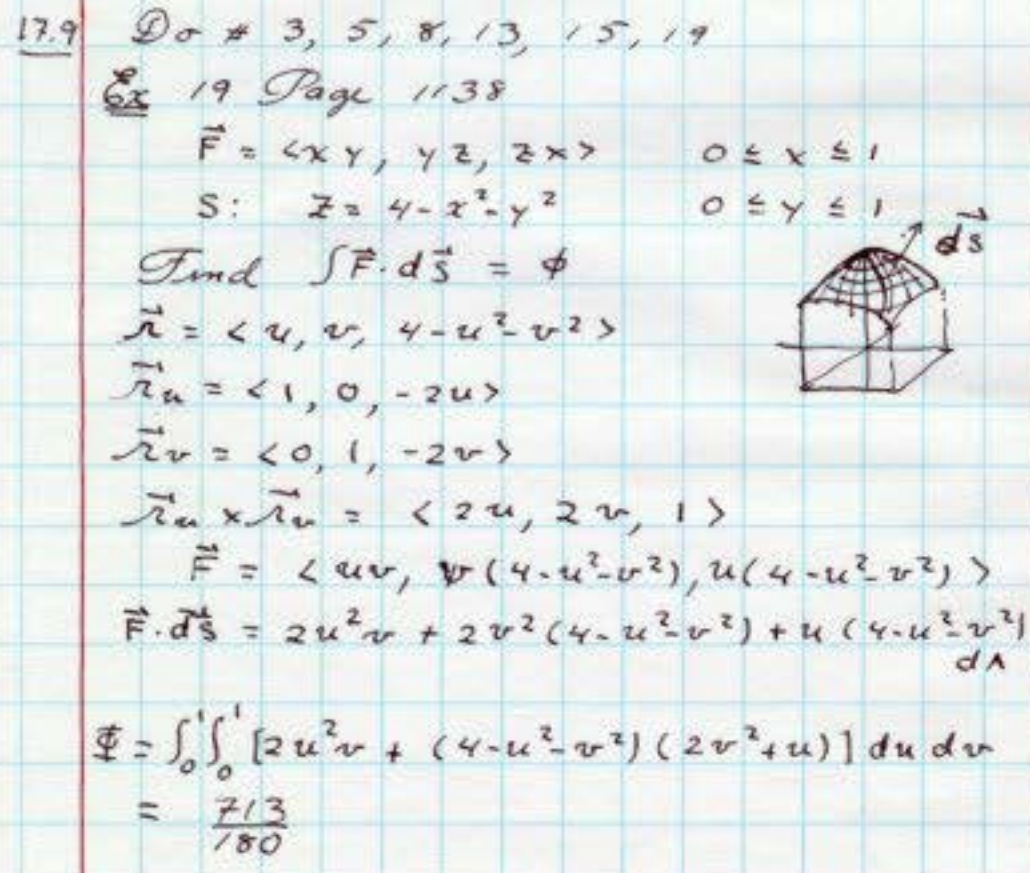 17.9 Do # 3, 5, 8, 13, 15, 19
Ex 19 Page 1138
F⃗ = <xy, yz, zx> 0 ≤ x ≤ 1
S: z = 4-x²-y² 0 ≤ y ≤ 1
Find ∫F⃗·dS⃗ = φ
dS⃗
r⃗ = <u, v, 4-u²-v²>
r⃗u = <1, 0, -2u>
r⃗v = <0, 1, -2v>
r⃗u × r⃗v = <2u, 2v, 1>
F⃗ = <uv, v(4-u²-v²), u(4-u²-v²)>
F⃗·dS⃗ = 2u²v + 2v²(4-u²-v²) + u(4-u²-v²)
dA
Φ = ∫₀¹∫₀¹ [2u²v + (4-u²-v²)(2v²+u)] du dv
= 713/180